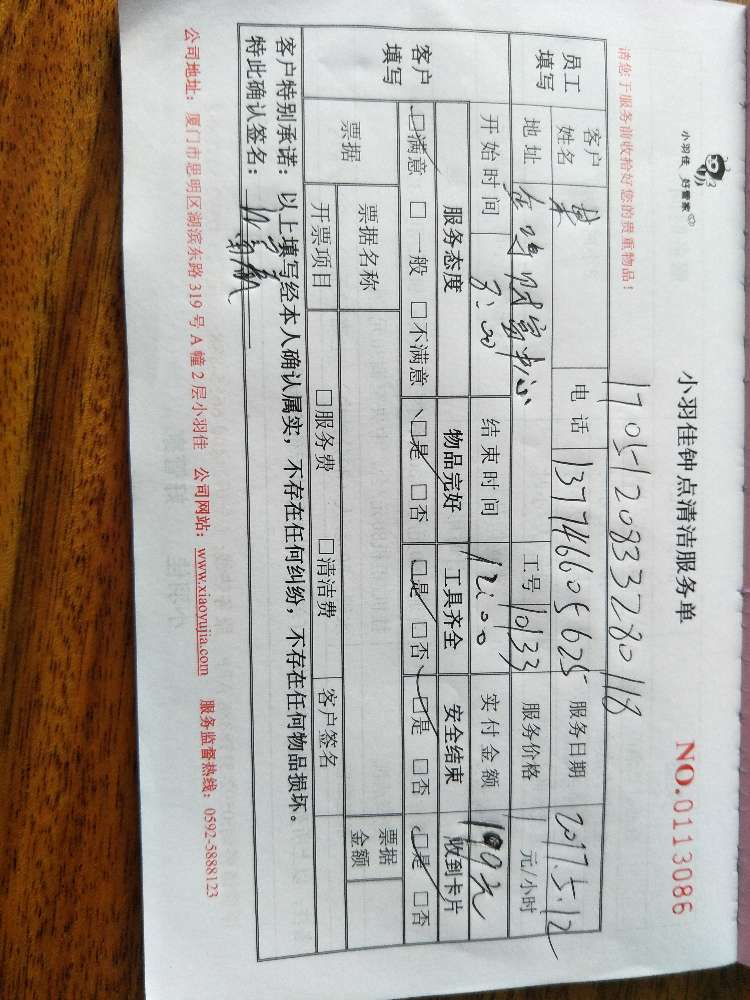 小羽佳 好管家
小羽佳钟点清洁服务单
NO.0113086
请您于服务前收捡好您的贵重物品！
1705120833280118
员工填写 客户姓名 电话 137746605625 服务日期 2017.5.12
地址 财富中心 工号 10133 服务价格 元/小时
开始时间 结束时间 12:00 实付金额
客户填写 服务态度 物品完好 工具齐全 安全结束 收到卡片
☑满意 □一般 □不满意 ☑是 □否 ☑是 □否 ☑是 □否 ☑是 □否
票据 票据名称 票据金额
开票项目 □服务费 □清洁费 客户签名
客户特别承诺：以上填写经本人确认属实，不存在任何纠纷，不存在任何物品损坏。
特此确认签名：
公司地址：厦门市思明区湖滨东路 319 号 A 幢 2 层小羽佳 公司网站：www.xiaoyujia.com 服务监督热线：0592-5888123